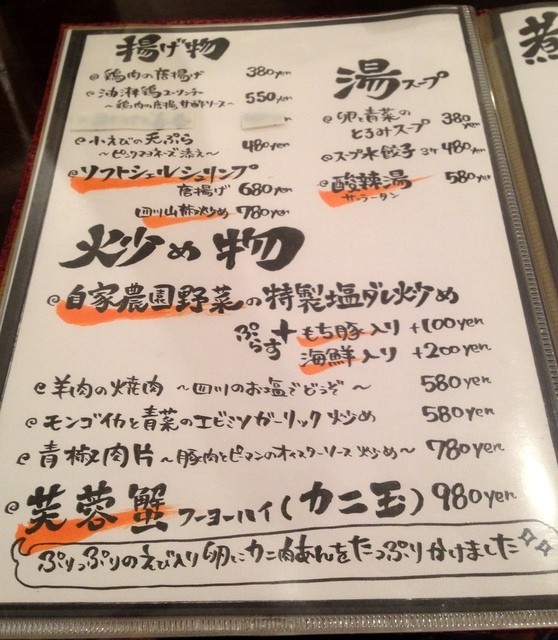 揚げ物
鶏肉の唐揚げ 380yen
油淋鶏ユーリンチー
～鶏肉の唐揚 甘酢ソース～ 550yen
小えびの天ぷら
～ピンクマヨネーズ添え～ 480yen
ソフトシェルシュリンプ
唐揚げ 680yen
四川山椒炒め 780yen
湯スープ
卵と青菜の
とろみスープ 380yen
スープ水餃子 3ケ 480yen
酸辣湯 580yen
サンラータン
炒め物
自家農園野菜の特製塩ダレ炒め
ぷらす + もち豚入り +100yen
海鮮入り +200yen
羊肉の焼肉 ～四川のお塩でどうぞ～ 580yen
モンゴイカと青菜のエビミソガーリック炒め 580yen
青椒肉片～豚肉とピーマンのオイスターソース炒め～ 780yen
芙蓉蟹フーヨーハイ(カニ玉) 980yen
ぷりっぷりのえび入り卵にカニ肉あんをたっぷりかけました
煮